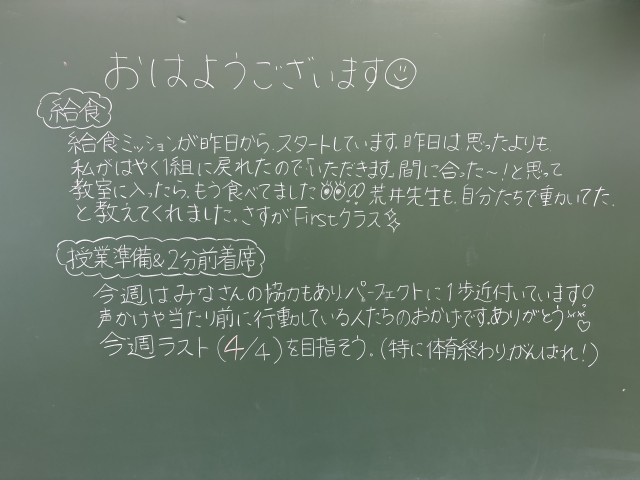 おはようございます
給食
給食ミッションが昨日から、スタートしています。昨日は思ったよりも、
私がはやく1組に戻れたので「いただきます。間に合った〜!」と思って
教室に入ったら、もう食べてました!! 荒井先生も、自分たちで動いてた、
と教えてくれました。さすがFirstクラス
授業準備&2分前着席
今週はみなさんの協力もあり、パーフェクトに1歩近付いています!
声かけや当たり前に行動している人たちのおかげです。ありがとう
今週ラスト(4/4)を目指そう。(特に体育終わり、がんばれ!)